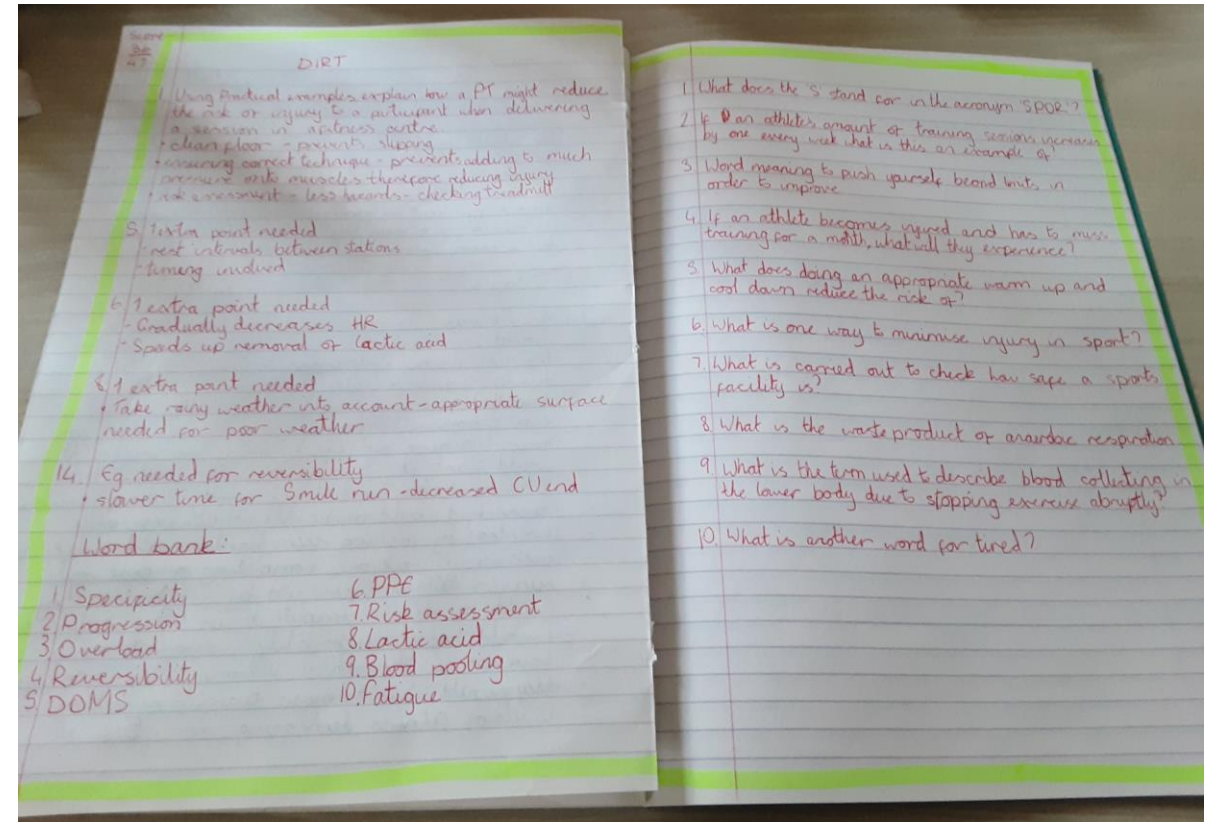 Score
36
47
DIRT
1. Using Practical examples explain how a PT might reduce
the risk of injury to a participant when delivering
a session in a fitness centre
• clean floor - prevents slipping
• ensuring correct technique - prevents adding to much
pressure onto muscles therefore reducing injury
• risk assessment - less hazards - checking treadmill
5. 1 extra point needed
- rest intervals between stations
- timeing involved
6. 1 extra point needed
- Gradually decreases HR
- Speeds up removal of lactic acid
8. 1 extra point needed
• Take rainy weather into account - appropriate surface
needed for poor weather
14. Eg needed for reversibility
• slower time for 5mile run - decreased CV end
Word bank:
1. Specificity
2. Progression
3. Overload
4. Reversibility
5. DOMS
6. PPE
7. Risk assessment
8. Lactic acid
9. Blood pooling
10. Fatigue
1. What does the 'S' stand for in the acronym 'SPOR'?
2. If an athletes amount of training sessions increases
by one every week what is this an example of
3. Word meaning to push yourself beond limits in
order to improve
4. If an athlete becomes injured and has to miss
training for a month, what will they experience?
5. What does doing an appropriate warm up and
cool down reduce the risk of?
6. What is one way to minimise injury in sport?
7. What is carried out to check how safe a sports
facility is?
8. What is the waste product of anaerobic respiration
9. What is the term used to describe blood collecting in
the lower body due to stopping exercise abruptly?
10. What is another word for tired?